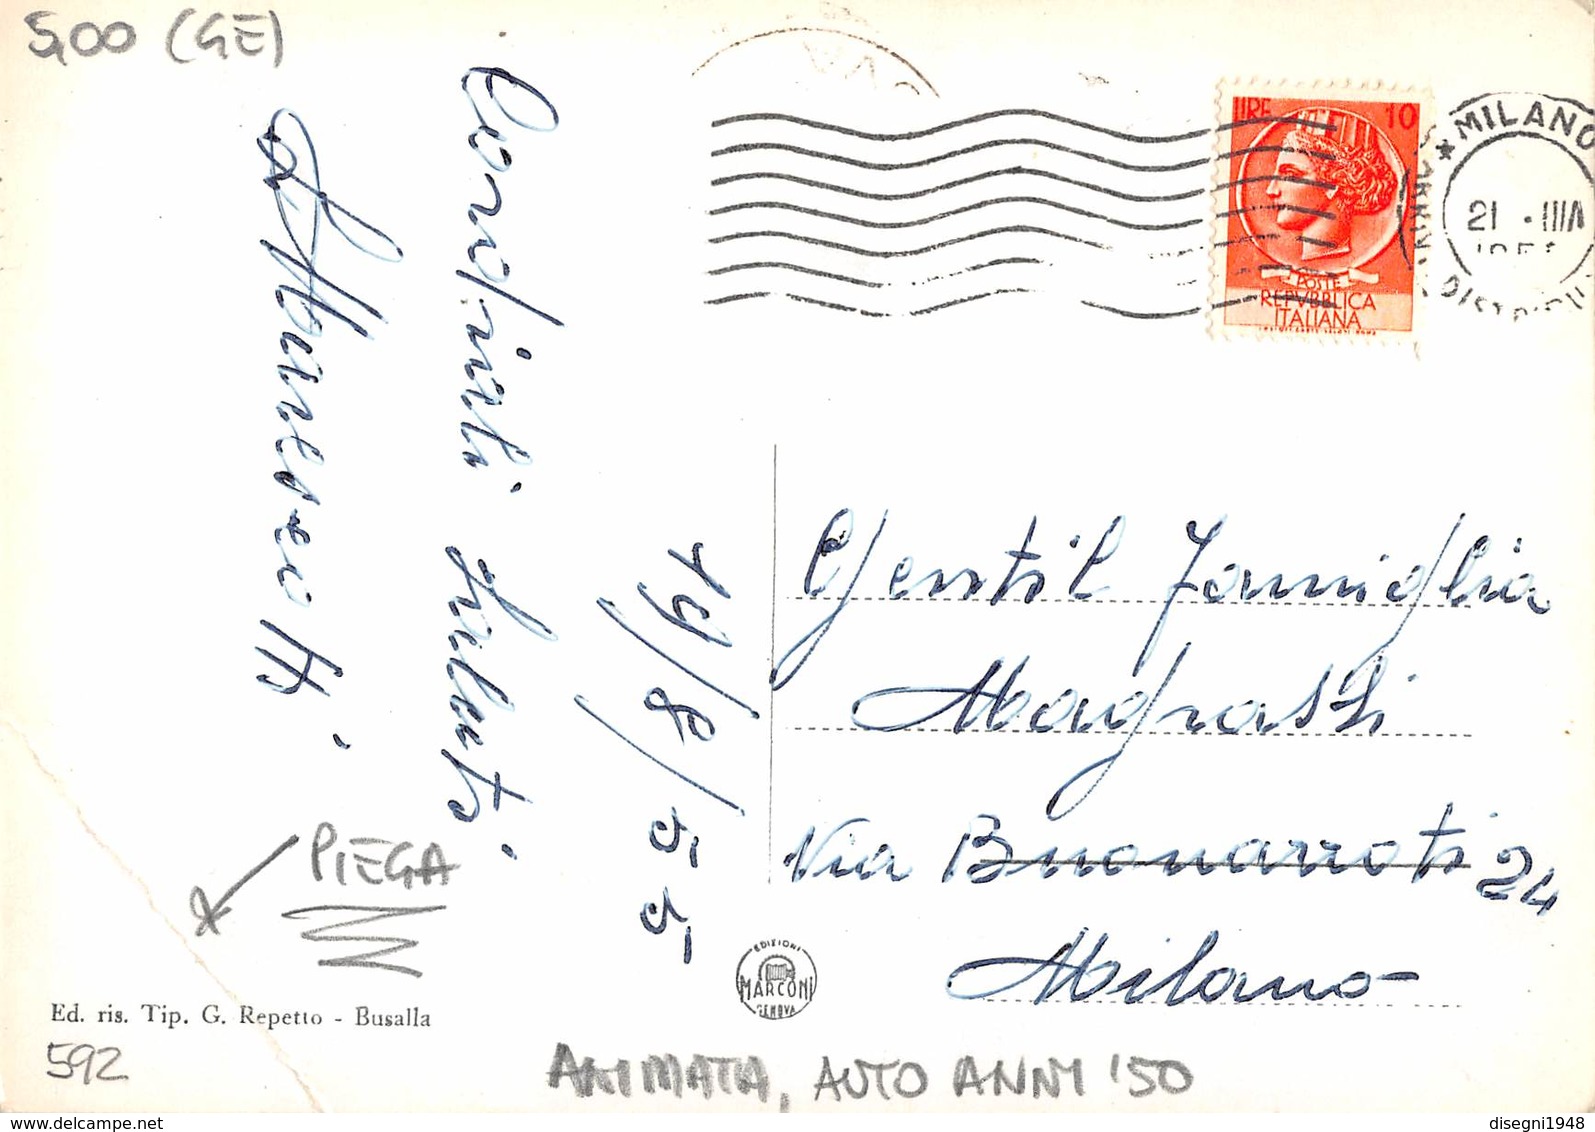 5,00 (GE)
Cordiali saluti
19/8/55
LIRE 10
POSTE
REPVBBLICA
ITALIANA
* MILANO
21 · III
Gentil Famiglia
Magrassi
Via Buonarroti 24
Milano
PIEGA
EDIZIONI
MARCONI
GENOVA
Ed. ris. Tip. G. Repetto - Busalla
592
ANIMATA, AUTO ANNI '50
www.delcampe.net
disegni1948